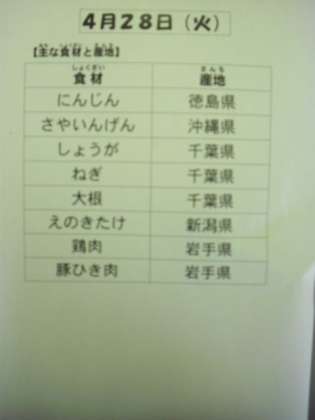 4月28日（火）
【主な食材と産地】
食材 産地
にんじん 徳島県
さやいんげん 沖縄県
しょうが 千葉県
ねぎ 千葉県
大根 千葉県
えのきたけ 新潟県
鶏肉 岩手県
豚ひき肉 岩手県